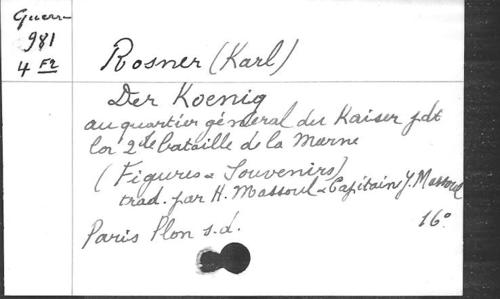 Guerre
981
4 F2
Rosner (Karl)
Der Koenig
au quartier général du Kaiser pdt
la 2de bataille de la Marne
(Figures & Souvenirs)
trad. par H. Massoul & Capitain J. Massoul
Paris Plon s.d. 16°